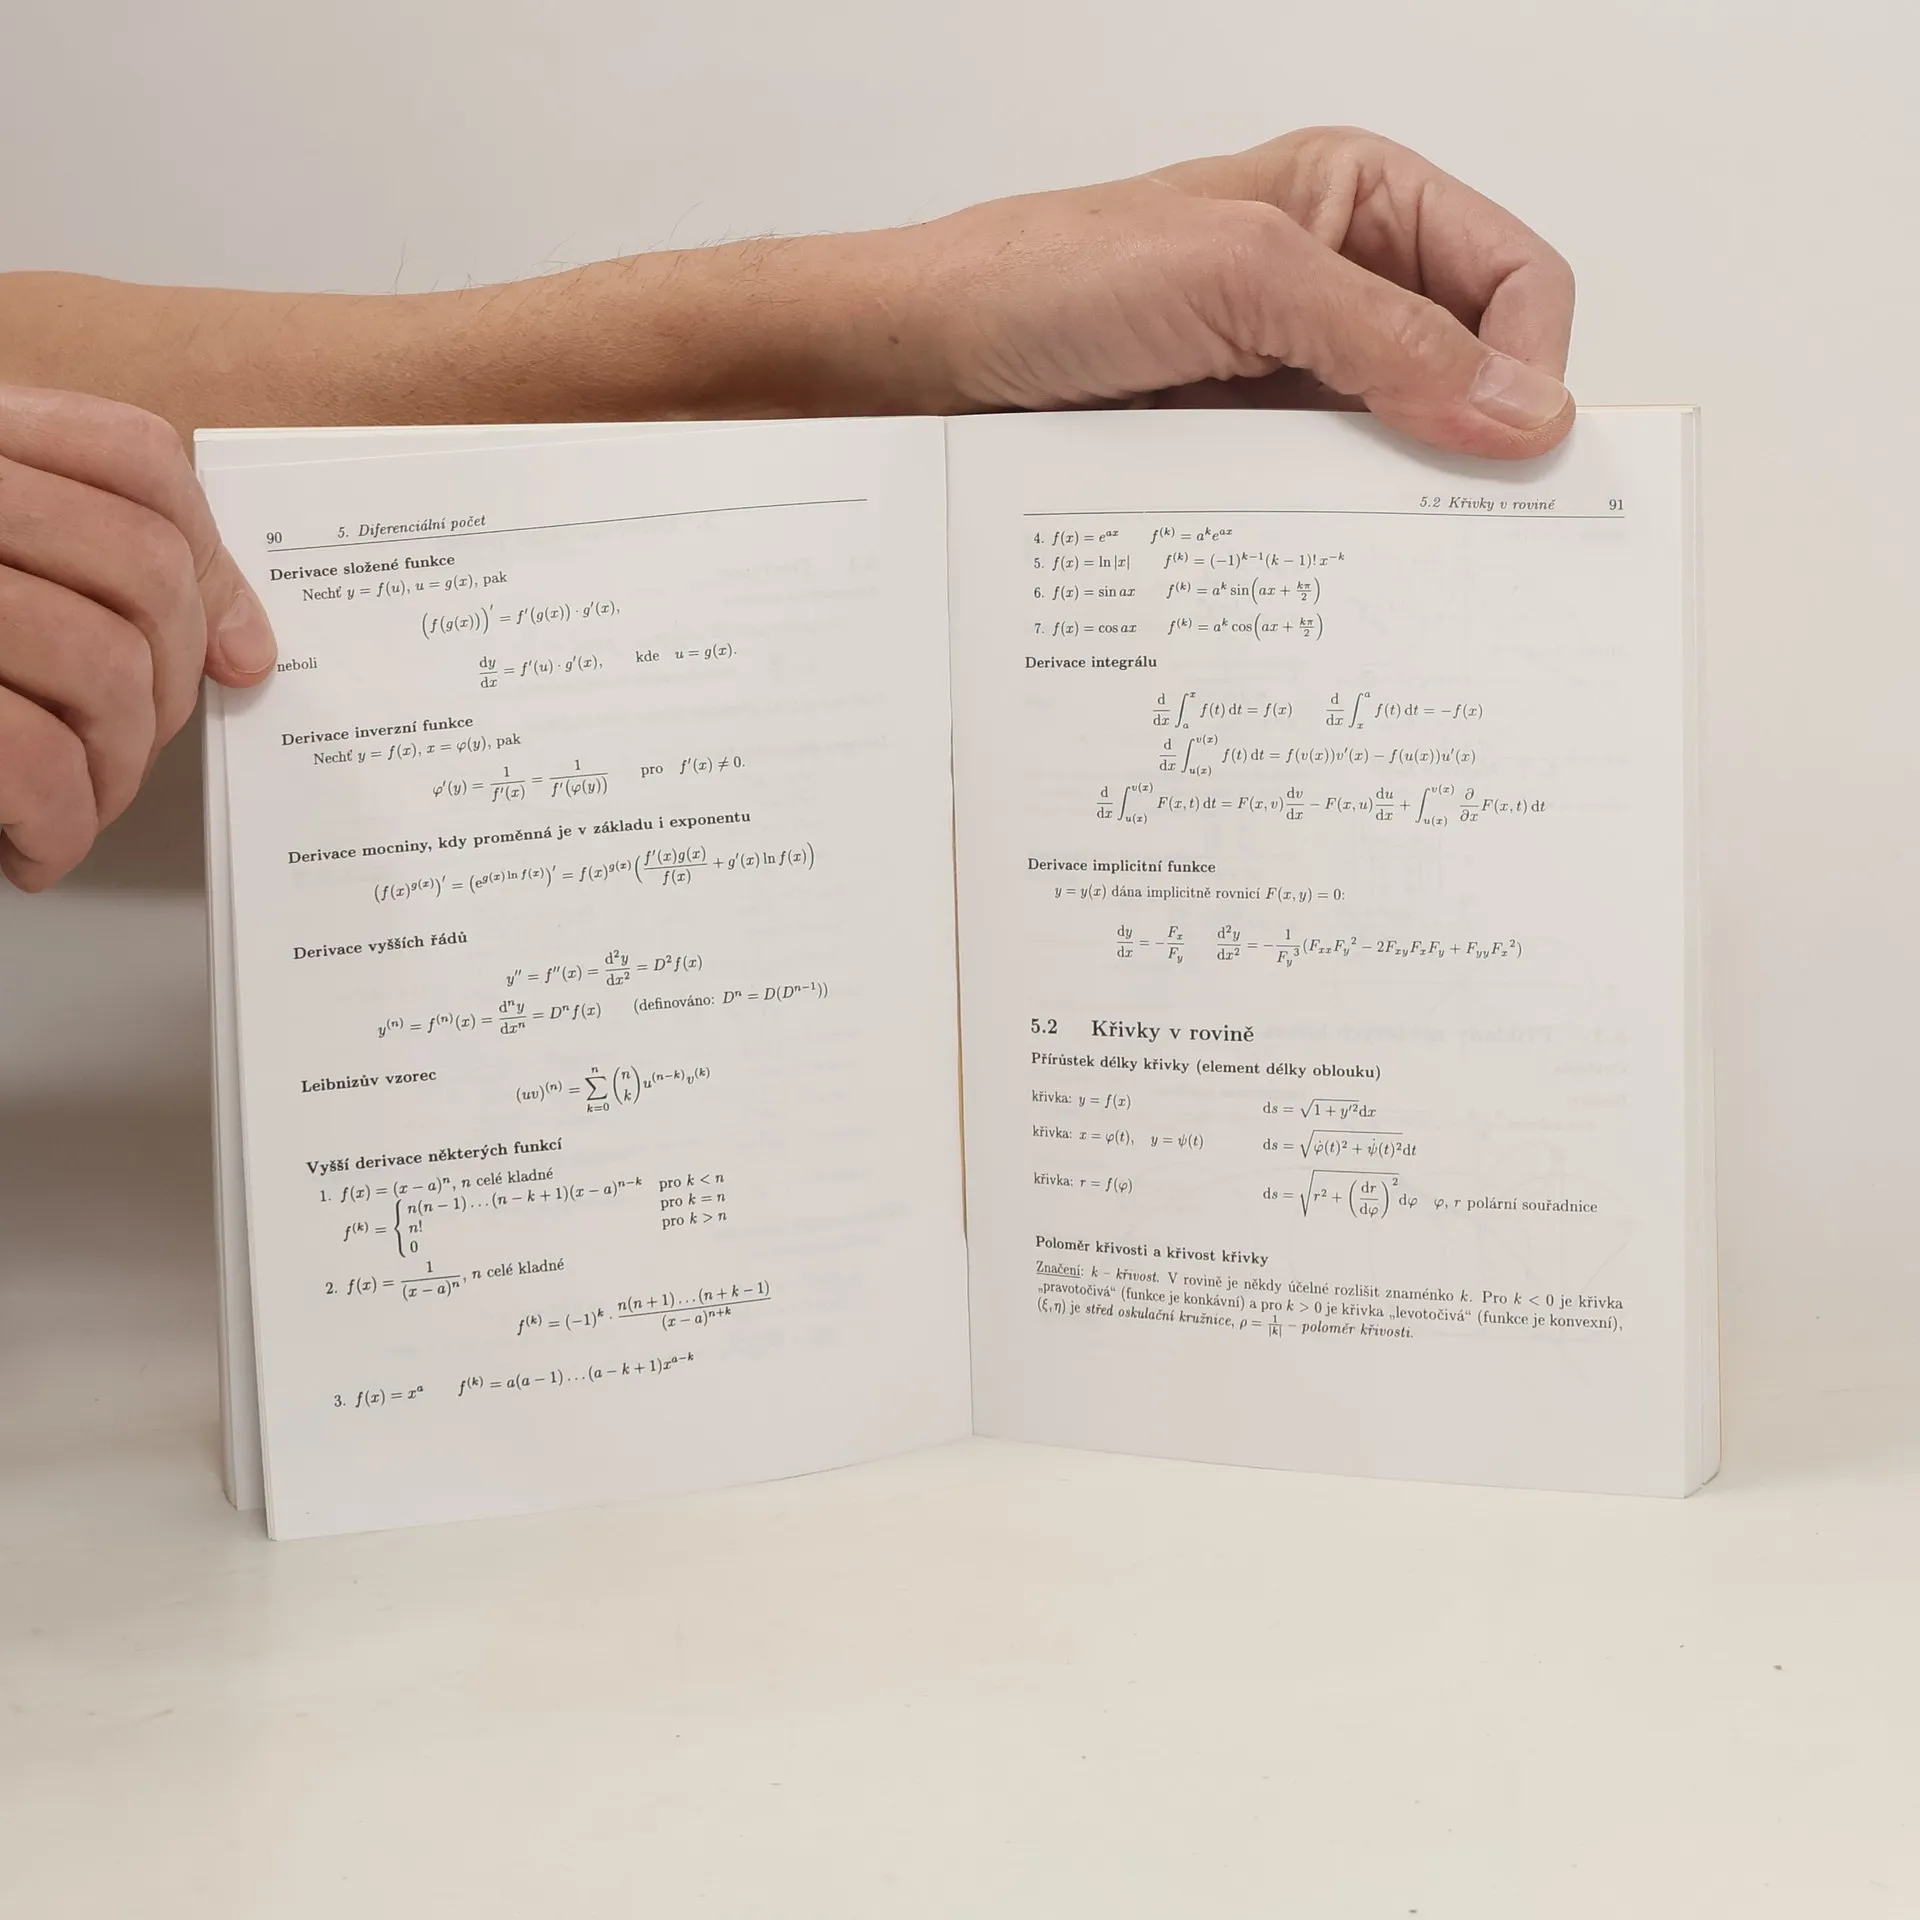 90 5. Diferenciální počet
Derivace složené funkce
Nechť y = f(u), u = g(x), pak
(f(g(x)))′ = f′(g(x)) · g′(x),
neboli dy/dx = f′(u) · g′(x), kde u = g(x).
Derivace inverzní funkce
Nechť y = f(x), x = φ(y), pak
φ′(y) = 1/f′(x) = 1/f′(φ(y)) pro f′(x) ≠ 0.
Derivace mocniny, kdy proměnná je v základu i exponentu
(f(x)^{g(x)})′ = (e^{g(x) ln f(x)})′ = f(x)^{g(x)} (f′(x)g(x)/f(x) + g′(x) ln f(x))
Derivace vyšších řádů
y″ = f″(x) = d²y/dx² = D²f(x)
y^{(n)} = f^{(n)}(x) = dⁿy/dxⁿ = Dⁿf(x) (definováno: Dⁿ = D(Dⁿ⁻¹))
Leibnizův vzorec
(uv)^{(n)} = ∑_{k=0}^{n} (n k) u^{(n−k)} v^{(k)}
Vyšší derivace některých funkcí
1. f(x) = (x − a)ⁿ, n celé kladné
f^{(k)} = { n(n − 1)…(n − k + 1)(x − a)^{n−k} pro k < n
n! pro k = n
0 pro k > n
2. f(x) = 1/(x − a)ⁿ, n celé kladné
f^{(k)} = (−1)^k · n(n + 1)…(n + k − 1)/(x − a)^{n+k}
3. f(x) = x^a f^{(k)} = a(a − 1)…(a − k + 1)x^{a−k}
5.2 Křivky v rovině 91
4. f(x) = e^{ax} f^{(k)} = a^k e^{ax}
5. f(x) = ln |x| f^{(k)} = (−1)^{k−1}(k − 1)! x^{−k}
6. f(x) = sin ax f^{(k)} = a^k sin(ax + kπ/2)
7. f(x) = cos ax f^{(k)} = a^k cos(ax + kπ/2)
Derivace integrálu
d/dx ∫_a^x f(t) dt = f(x) d/dx ∫_x^a f(t) dt = −f(x)
d/dx ∫_{u(x)}^{v(x)} f(t) dt = f(v(x))v′(x) − f(u(x))u′(x)
d/dx ∫_{u(x)}^{v(x)} F(x, t) dt = F(x, v) dv/dx − F(x, u) du/dx + ∫_{u(x)}^{v(x)} ∂/∂x F(x, t) dt
Derivace implicitní funkce
y = y(x) dána implicitně rovnicí F(x, y) = 0:
dy/dx = −F_x/F_y d²y/dx² = −1/F_y³ (F_{xx}F_y² − 2F_{xy}F_xF_y + F_{yy}F_x²)
5.2 Křivky v rovině
Přírůstek délky křivky (element délky oblouku)
křivka: y = f(x) ds = √(1 + y′²)dx
křivka: x = φ(t), y = ψ(t) ds = √(φ̇(t)² + ψ̇(t)²)dt
křivka: r = f(φ) ds = √(r² + (dr/dφ)²)dφ φ, r polární souřadnice
Poloměr křivosti a křivost křivky
Značení: k – křivost. V rovině je někdy účelné rozlišit znaménko k. Pro k < 0 je křivka
„pravotočivá“ (funkce je konkávní) a pro k > 0 je křivka „levotočivá“ (funkce je konvexní),
(ξ, η) je střed oskulační kružnice, ρ = 1/|k| – poloměr křivosti.